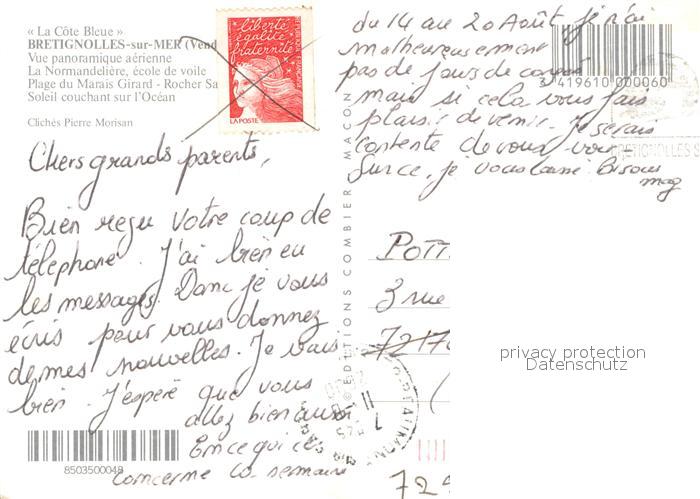 « La Côte Bleue »
BRETIGNOLLES-sur-MER (Vend
Vue panoramique aérienne
La Normandelière, école de voile
Plage du Marais Girard - Rocher Sa
Soleil couchant sur l'Océan
Clichés Pierre Morisan
liberté
égalité
fraternité
LA POSTE
Chers grands parents,
Bien reçu votre coup de
téléphone. J'ai bien eu
les messages. Donc je vous
écris pour vous donnez
de mes nouvelles. Je vais
bien. J'espère que vous
allez bien aussi
En ce qui
concerne la semaine
8503500048
du 14 au 20 Août, je n'ai
malheureusement
pas de jours de congé
mais si cela vous fais
plaisir de venir. Je serais
contente de vous voir.
Sur ce, je vous laisse. Bisous
mag
3 419610 000060
BRETIGNOLLES S
© EDITIONS COMBIER MACON
POTT
3 rue
7217
72
privacy protection
Datenschutz